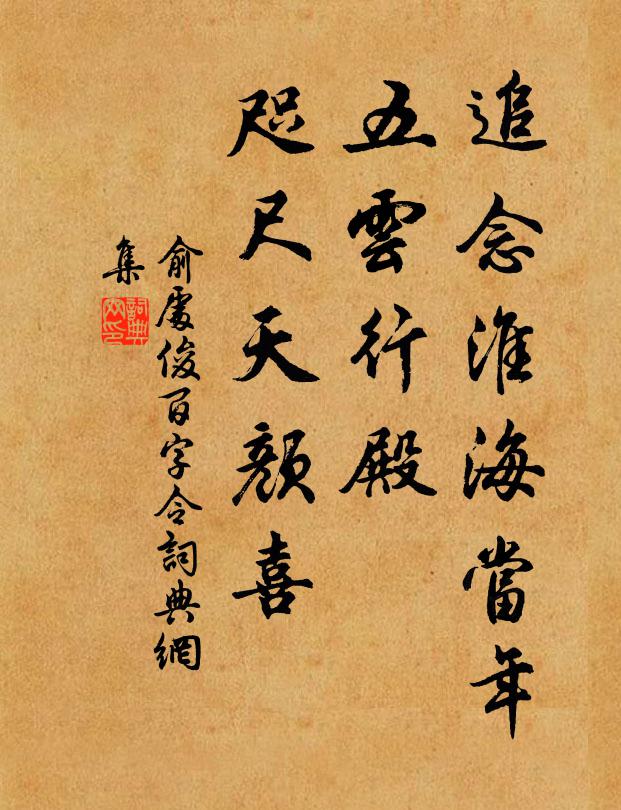 追念淮海當年
五雲行殿
咫尺天顏喜
俞處俊百字令詞典網
集
詞典
网印